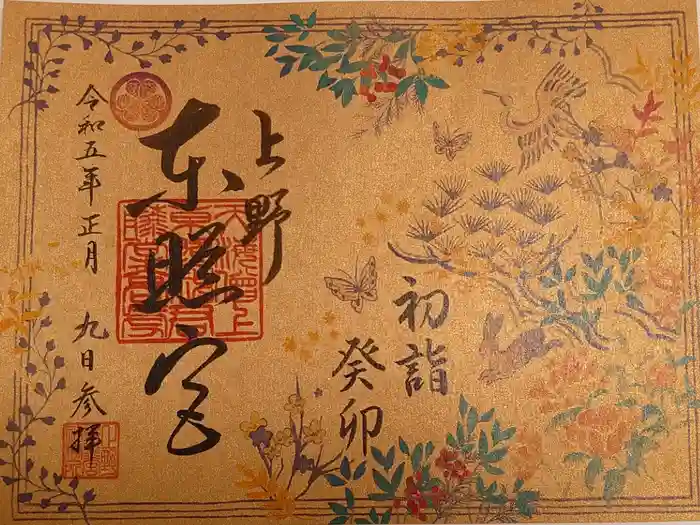 初詣
癸卯
上野
東照宮
令和五年正月九日参拝